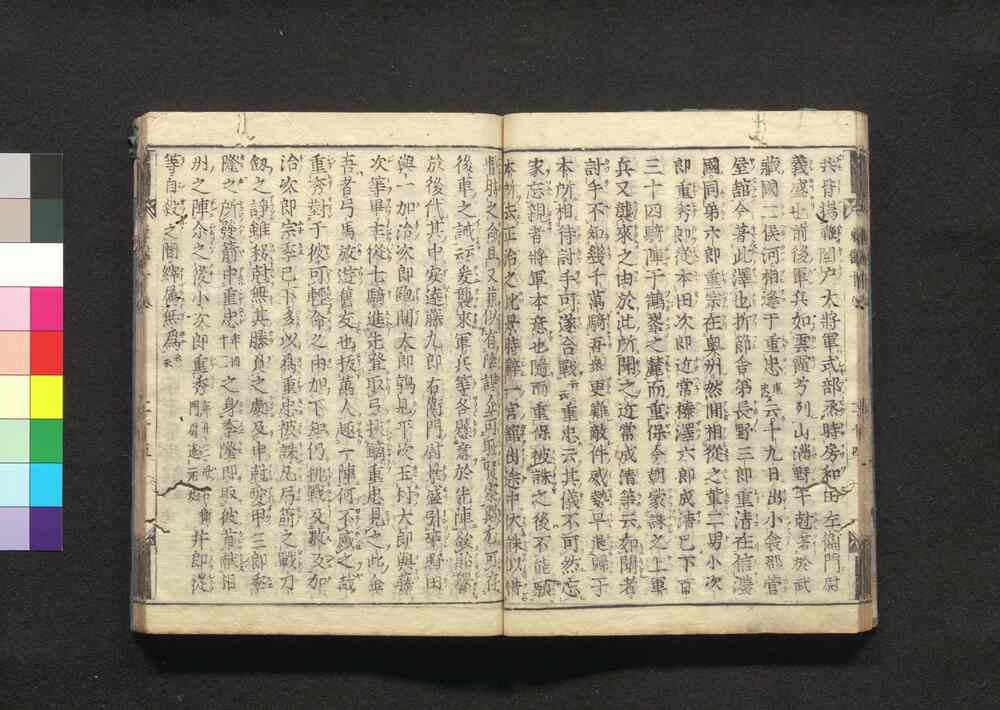 義盛也前後軍兵如雲霞兮列山満野午尅着於武
藏國二俣河相逢于重忠重忠去十九日出小衾郡菅
屋舘今着此澤也折節舎弟長野三郎重清在信濃
國同弟六郎重宗在奥州然間相從之輩二男小次
郎重秀郎從本田次郎近常榛澤六郎成清已下百
三十四騎陣于鶴峯之麓而重保今朝蒙誅之上軍
兵又襲來之由於此所聞之近常成清等云如聞者
討手不知幾千萬騎吾衆更難敵件威勢早退歸于
本所相待討手可遂合戰云云重忠云其儀不可然忘
家忘親者將軍本意也隨而重保被誅之後不能顧
本所去正治之比景時辭一宮舘出途中伏誅似惜
暫時之命且又兼似有陰謀企可耻賢察歟尤可存
後車之誡云云爰襲來軍兵等各懸意於先陣欲胎譽
於後代其中安達藤九郎右衛門尉景盛引率野田
與一加治次郎飽間太郎鶴見平次玉村太郎與藤
次等畢主從七騎進先登取弓挾鏑重忠見之此金
吾者弓馬放遊舊友也抜萬人赴一陣何不感之哉
重秀對于彼可輕命之由加下知仍挑戰及數反加
治次郎宗季已下多以爲重忠被誅凡弓箭之戰刀
劔之諍雖移尅無其勝負之處及申尅愛甲三郎季
隆之所發箭中重忠年四十二之身季隆即取彼首献相
州之陣尓之後小次郎重秀 并郎從
等自殺之間縡属無爲